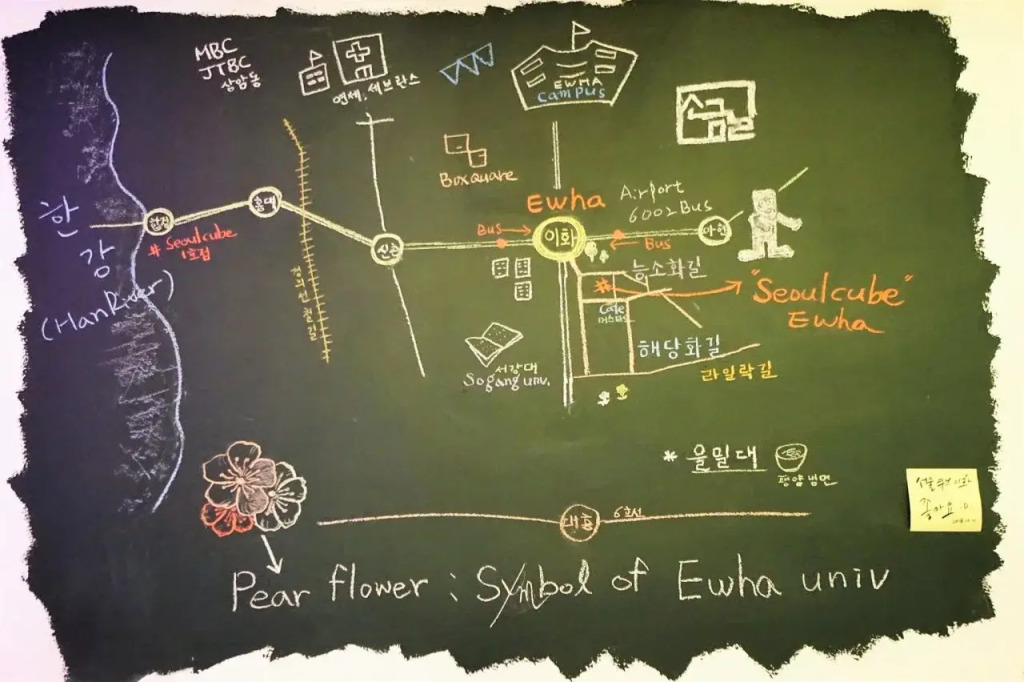 MBC
JTBC
상암동
연세, 세브란스
EWHA
campus
신촌길
한
강
(HanRiver)
합정
홍대
# Seoulcube
1호점
경의선철길
신촌
Boxquare
Ewha
Bus
이화
Airport
6002 Bus
Bus
아현
능소화길
Cafe
"Seoulcube"
Ewha
해당화길
라일락길
서강대
Sogang univ.
* 을밀대
평양냉면
대흥
6호선
서울큐브이화
좋아요 :D
Pear flower : Symbol of Ewha univ